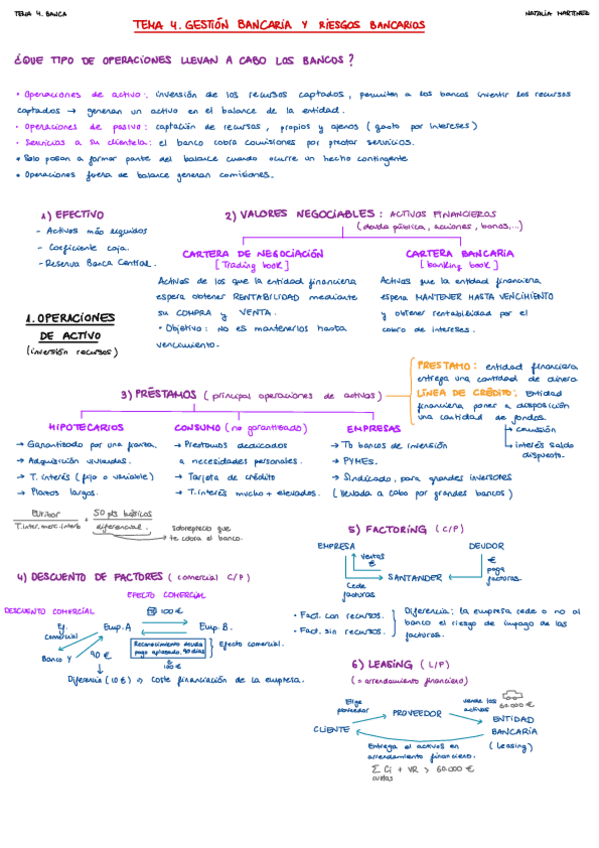 TEMA 4. BANCA
NATALIA MARTINEZ
TEMA 4. GESTIÓN BANCARIA Y RIESGOS BANCARIOS
¿QUE TIPO DE OPERACIONES LLEVAN A CABO LOS BANCOS?
• Operaciones de activo: inversión de los recursos captados, permiten a los bancos invertir los recursos
captados → generan un activo en el balance de la entidad.
• Operaciones de pasivo: captación de recursos, propios y ajenos (gasto por intereses)
• Servicios a su clientela: el banco cobra comisiones por prestar servicios.
* Solo pasan a formar parte del balance cuando ocurre un hecho contingente
* Operaciones fuera de balance generan comisiones.
1) EFECTIVO
- Activos más líquidos
- Coeficiente caja.
- Reserva Banco Central.
2) VALORES NEGOCIABLES: ACTIVOS FINANCIEROS
(deuda pública, acciones, bonos,...)
CARTERA DE NEGOCIACIÓN
[Trading book]
Activos de los que la entidad financiera
espera obtener RENTABILIDAD mediante
su COMPRA y VENTA.
• Objetivo: no es mantenerlos hasta
vencimiento.
CARTERA BANCARIA
[banking book]
Activos que la entidad financiera
espera MANTENER HASTA VENCIMIENTO
y obtener rentabilidad por el
cobro de intereses.
1. OPERACIONES
DE ACTIVO
(inversión recursos)
3) PRÉSTAMOS (principal operaciones de activos)
PRESTAMO: entidad financiera
entrega una cantidad de dinero
LÍNEA DE CRÉDITO: Entidad
financiera poner a disposición
una cantidad de fondos.
↳ comisión
↳ interés saldo
dispuesto.
HIPOTECARIOS
→ Garantizado por una
→ Adquisición viviendas.
→ T. interés (fijo o variable)
→ Plazos largos.
Euribor + 50 pts básicos
T.inter.merc.interb diferencial.
sobreprecio que
te cobra el banco.
CONSUMO (no garantizado)
→ Préstamos dedicados
a necesidades personales.
→ Tarjeta de crédito
→ T. interés mucho + elevados.
EMPRESAS
→ Tb bancos de inversión
→ PYMES.
→ Sindicado, para grandes inversores
(llevada a cabo por grandes bancos)
4) DESCUENTO DE FACTORES (comercial C/P)
EFECTO COMERCIAL
DESCUENTO COMERCIAL
100€
Ef.
comercial
Emp. A
Emp. B.
Banco Y
90€
Reconocimiento deuda
pago aplazado, 90 días
100€
Efecto comercial.
Diferencia (10€) ⇒ Coste financiación de la empresa.
5) FACTORING (C/P)
EMPRESA
DEUDOR
ventas
€
SANTANDER
€
paga
facturas.
Cede
facturas
• Fact. con recursos.
• Fact. sin recursos.
Diferencia: la empresa cede o no al
banco el riesgo de impago de las
facturas.
6) LEASING (L/P)
(= arrendamiento financiero)
Elige
proveedor
PROVEEDOR
vende los
activos
60.000€
CLIENTE
ENTIDAD
BANCARIA
(leasing)
Entrega el activos en
arrendamiento financiero.
Σ Ci + VR > 60.000€
cuotas